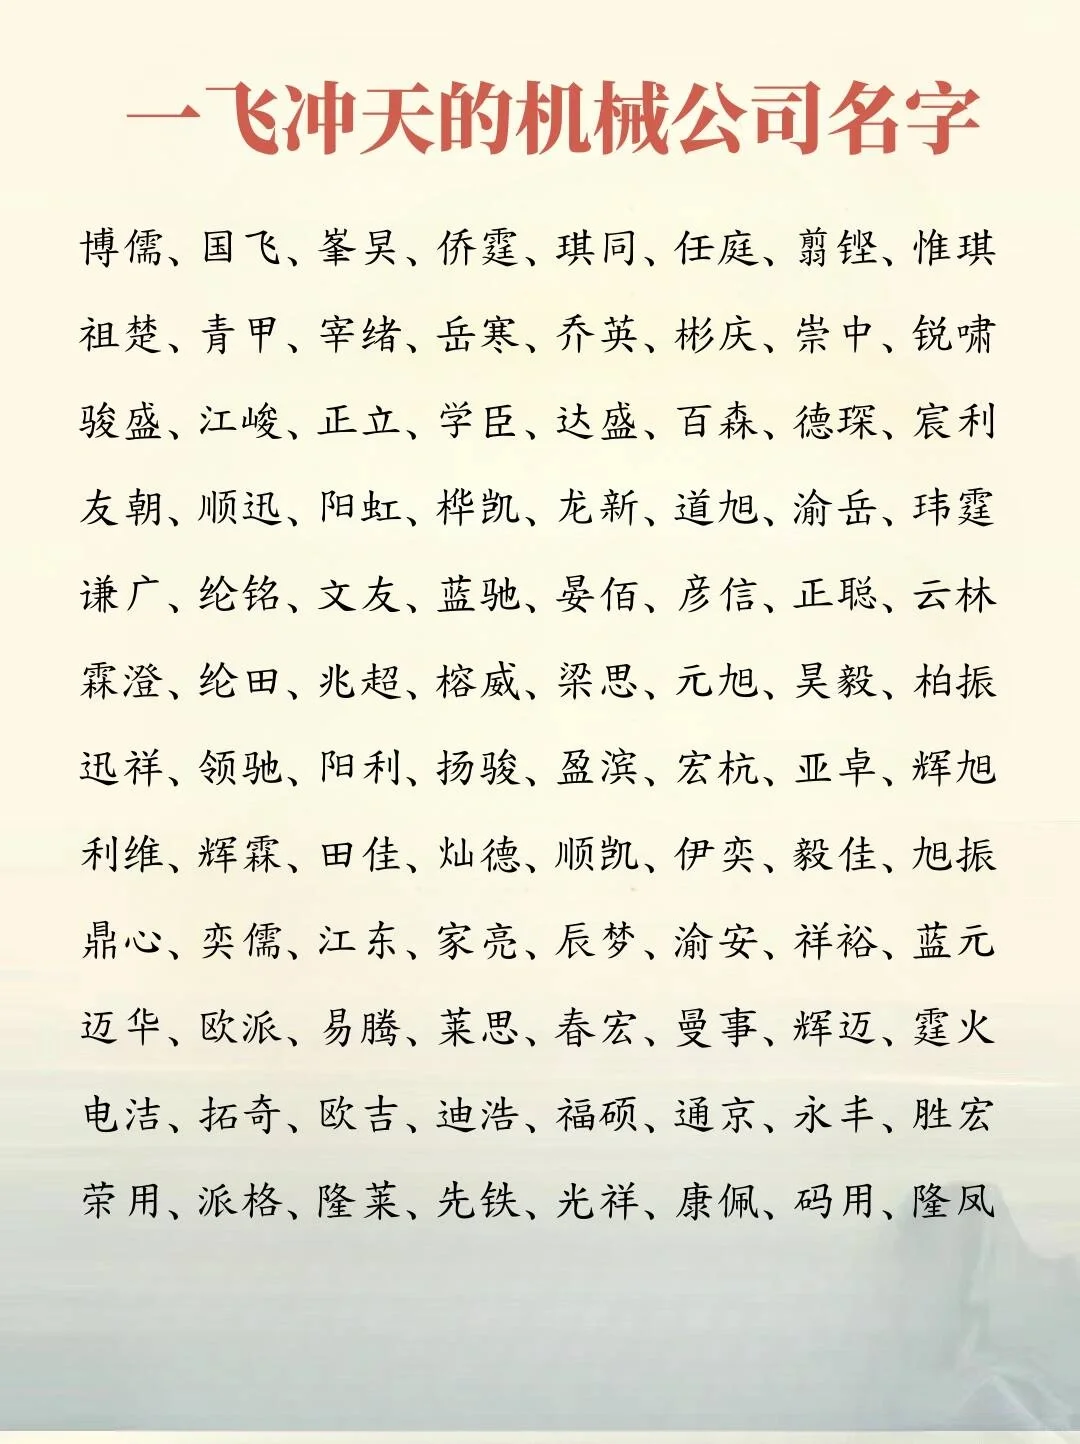 一飞冲天的机械公司名字
博儒、国飞、峯旻、侨霆、琪同、任庭、翦铿、惟琪
祖楚、青甲、宰绪、岳寒、乔英、彬庆、崇中、锐啸
骏盛、江峻、正立、学臣、达盛、百森、德琛、宸利
友朝、顺迅、阳虹、桦凯、龙新、道旭、渝岳、玮霆
谦广、纶铭、文友、蓝驰、晏佰、彦信、正聪、云林
霖澄、纶田、兆超、榕威、梁思、元旭、昊毅、柏振
迅祥、领驰、阳利、扬骏、盈滨、宏杭、亚卓、辉旭
利维、辉霖、田佳、灿德、顺凯、伊奕、毅佳、旭振
鼎心、奕儒、江东、家亮、辰梦、渝安、祥裕、蓝元
迈华、欧派、易腾、莱思、春宏、曼事、辉迈、霆火
电洁、拓奇、欧吉、迪浩、福硕、通京、永丰、胜宏
荣用、派格、隆莱、先铁、光祥、康佩、码用、隆凤